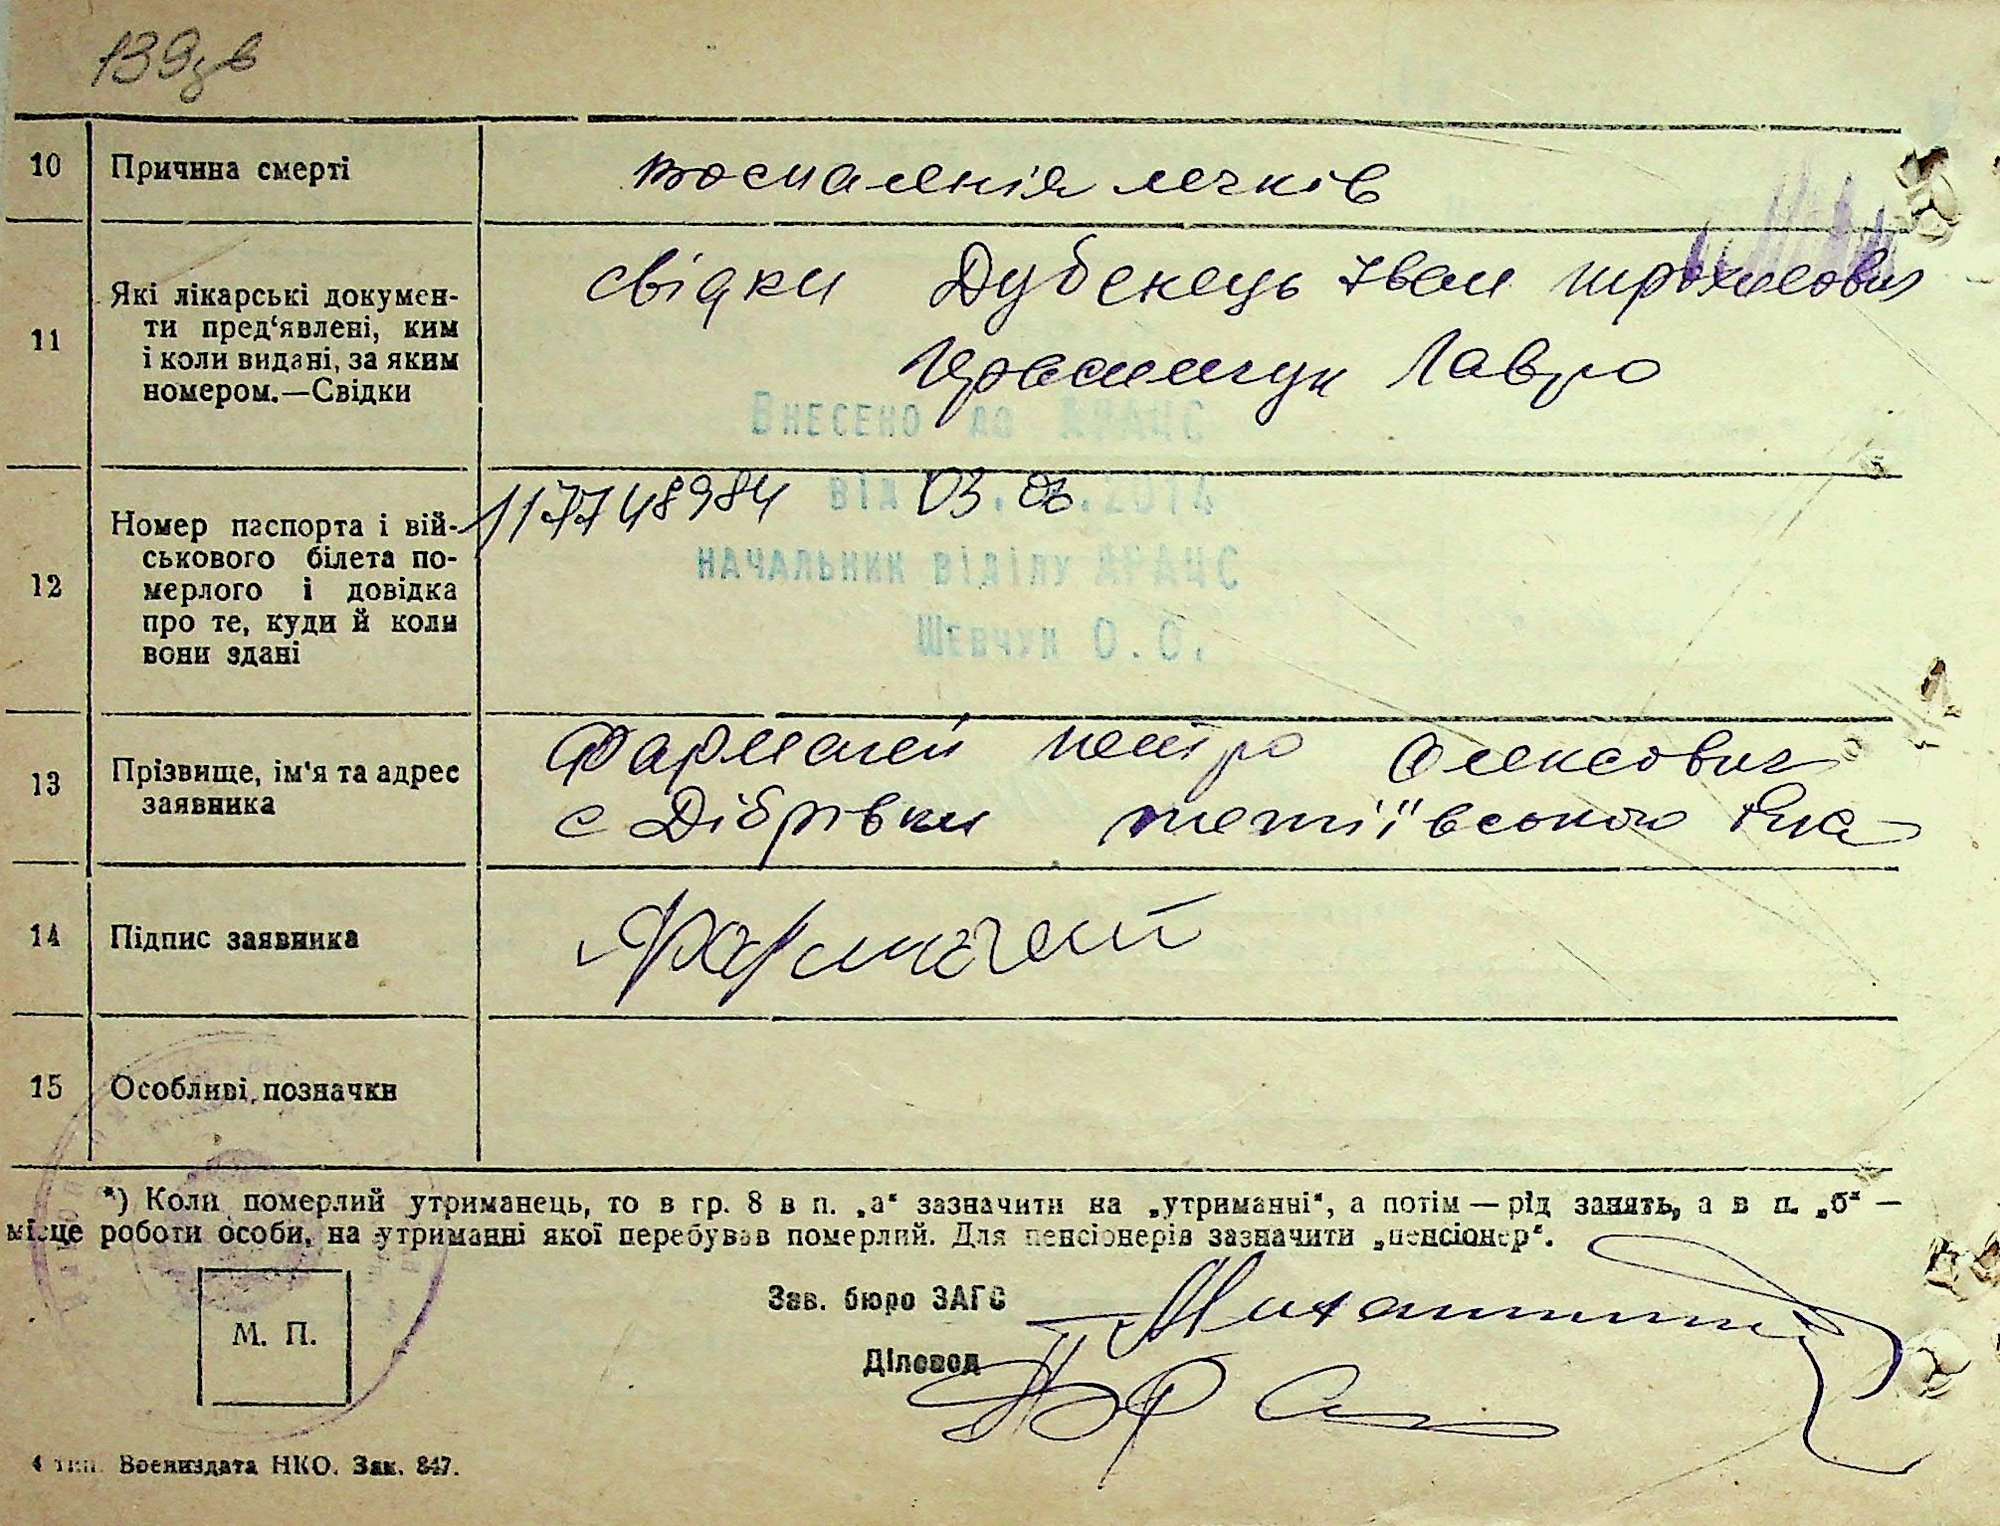 139зв
10 Причина смерті воспаленія легків
11 Які лікарські докумен-
ти пред'явлені, ким
і коли видані, за яким
номером.—Свідки
свідки Дубенець Іван Трохимович
Лавро
Внесено до ДРАЦС
від 03.06.2014
начальник відділу ДРАЦС
Шевчук О.О.
117748984
12 Номер паспорта і вій-
ськового білета по-
мерлого і довідка
про те, куди й коли
вони здані
13 Прізвище, ім'я та адрес
заявника
Фармагей Петро Олексович
с Дібрівки тетіївського
14 Підпис заявника Фармагей
15 Особливі позначки
*) Коли померлий утриманець, то в гр. 8 в п. „а“ зазначити на „утриманні“, а потім — рід занять, а в п. „б“ —
місце роботи особи, на утриманні якої перебував померлий. Для пенсіонерів зазначити „пенсіонер“.
М. П.
Зав. бюро ЗАГС
Діловод
4 тип. Воениздата НКО. Зак. 847.